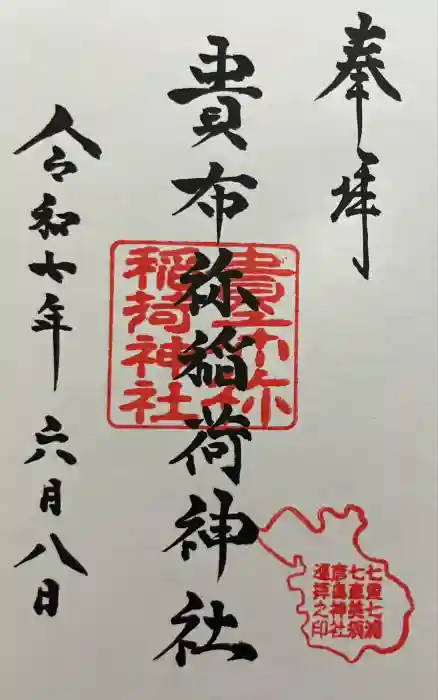 奉拝
貴布祢稲荷神社
貴布祢
稲荷神社
令和七年六月八日
七重七浦
彦島神社
巡拝之印